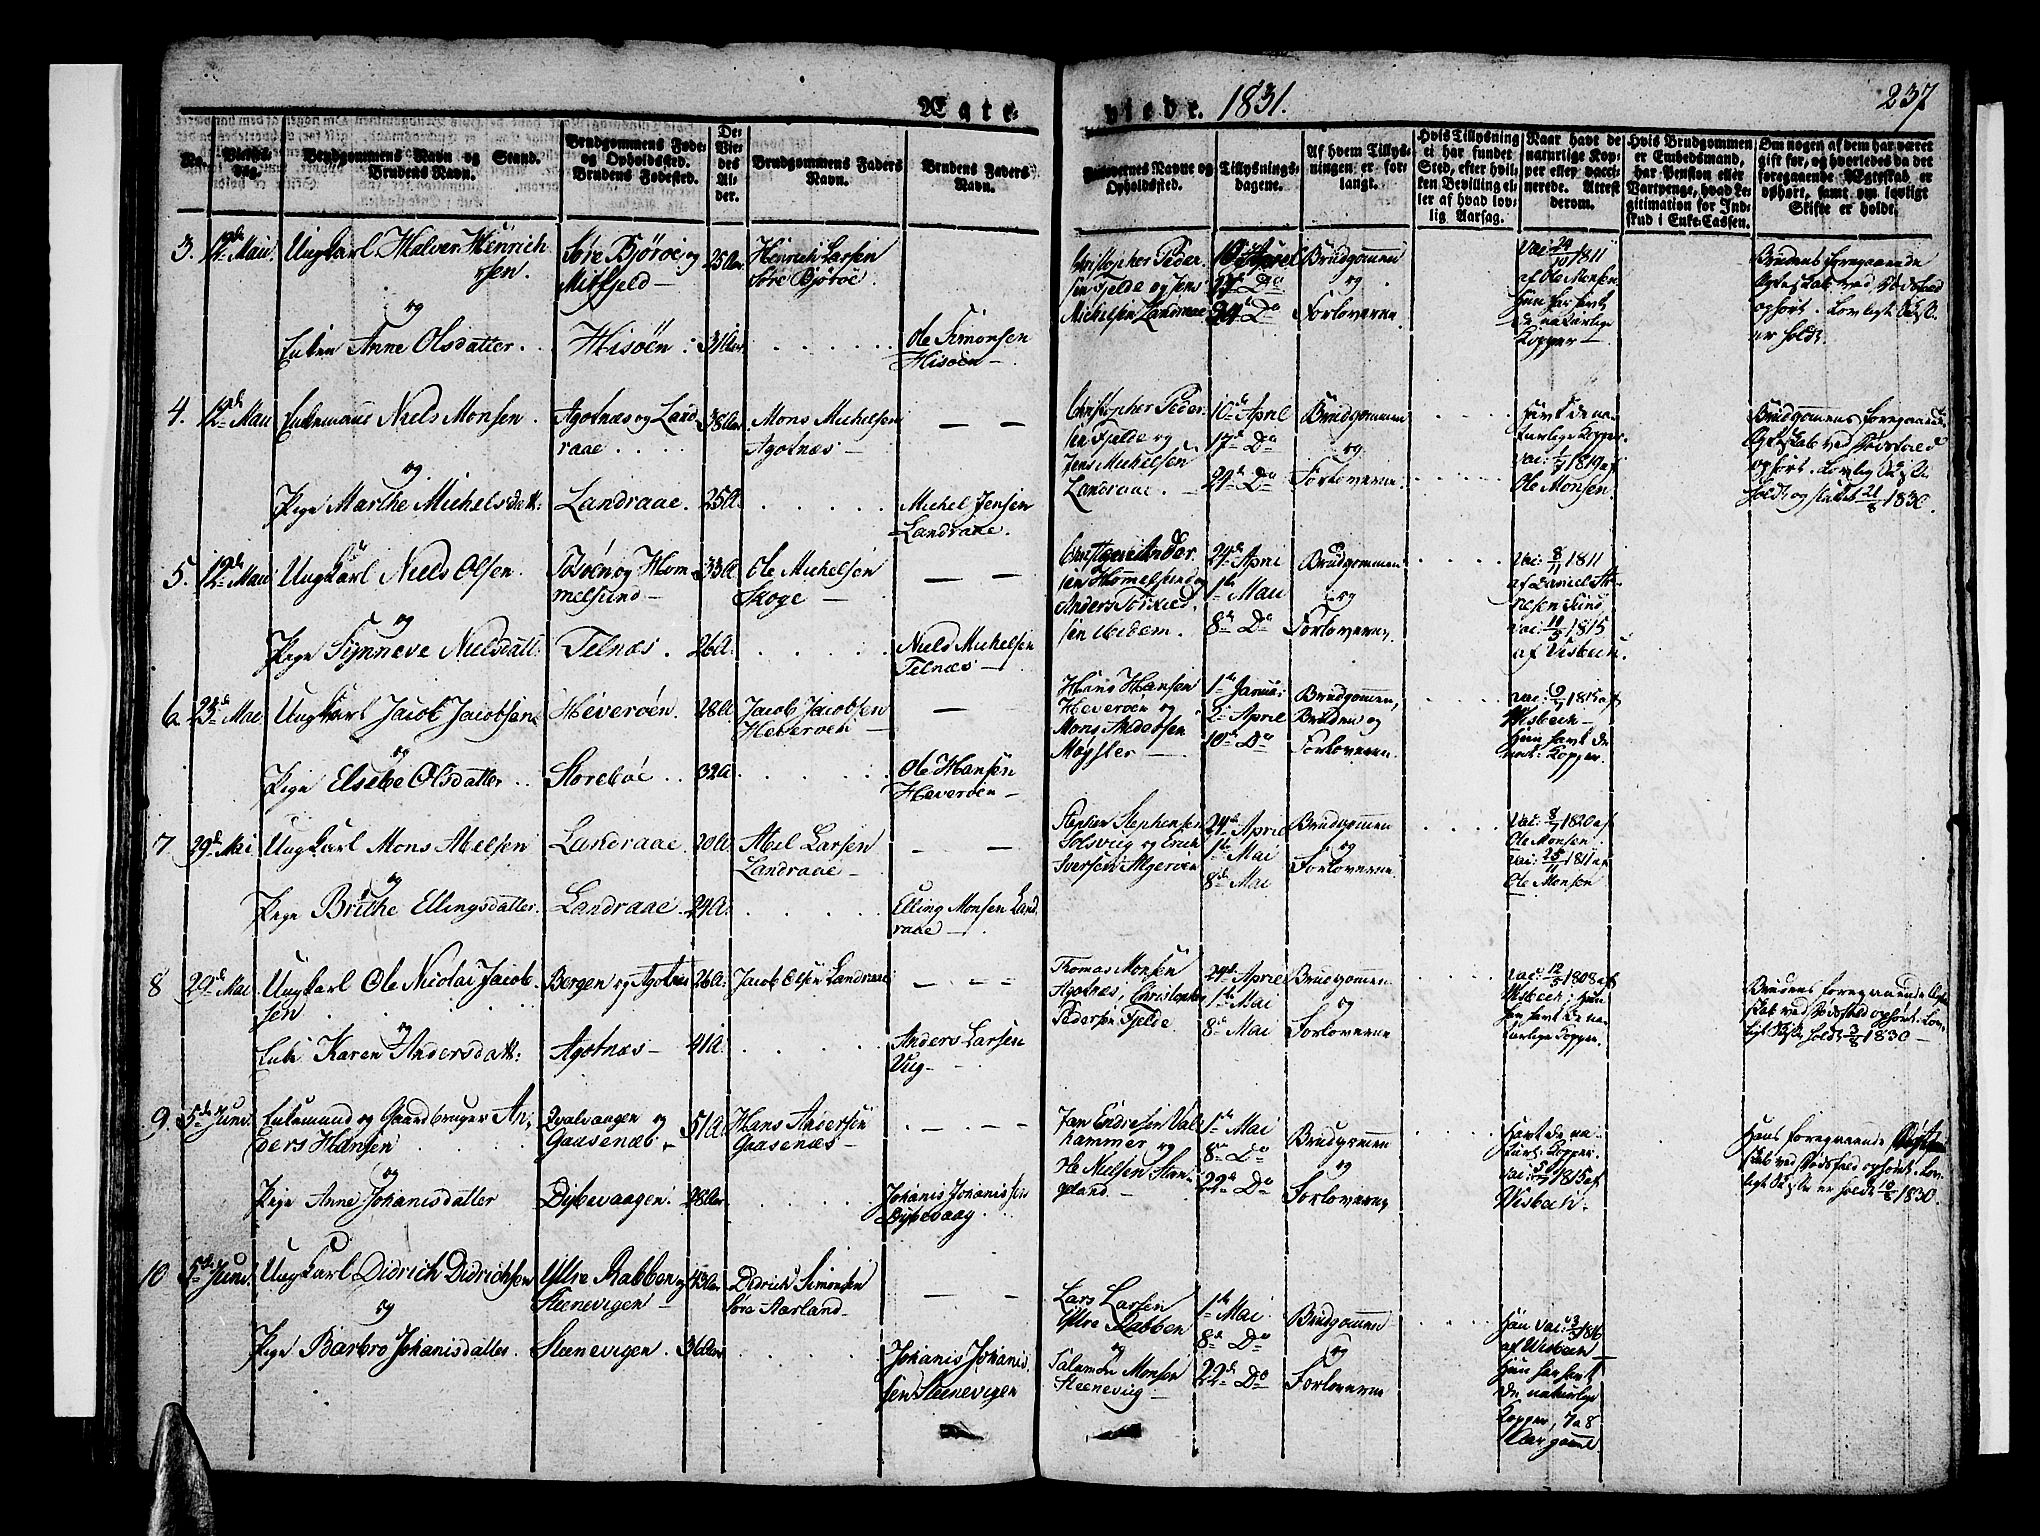 Ægte-
viede. 1831.
237
No.
Vielses-
dag.
Brudgommens Navn og Stand.
Brudens Navn.
Brudgommens Føde-
og Opholdssted.
Brudens Fødested.
De
Vie-
des
Al-
der.
Brudgommens Faders
Navn.
Brudens Faders
Navn.
Forlovernes Navne og
Opholdssted.
Tillysnings-
dagene.
Af hvem Tillys-
ningen er for-
langt.
Hvis Tillysning
ei har fundet
Sted, efter hvil-
ken Bevilling el-
ler af hvad lov-
lig Aarsag.
Naar havt de
naturlige Kop-
per eller vacci-
nerede. Attest
derom.
Hvis Brudgommen
er Embedsmand,
har Pension eller
Vartpenge, hvad Le-
gitimation for Ind-
skud i Enke-Cassen.
Om nogen af dem har været
gift før, og hvorledes da det
foregaaende Ægteskab er
ophørt, samt om lovligt
Skifte er holdt.
3. 12de Maii Ungkarl Halver Hinrich
sen.
og
Enken Anne Olsdatter.
Søre Bjørøe og
Mitfjeld
Hisöen
25 Aar
31 Aar
Henrich Larsen
Søre Bjørøe.
Ole Simonsen
Hisöen
Christopher Peder-
sen Fjelde og Jens
Michelsen Landraae
10 April
17de Do
24de Do
Brudgommen
og
Forloverne
vac: 24/10 1811
af Ole Monsen
hun har havt
de naturlige
Kopper
Brudens foregaaende
Ægteskab ved Dödsfald
ophört. Lovligt Skifte
er holdt.
4. 12de Maii Enkemand Niels Monsen
og
Pige Marthe Michelsdatt:
Agotnæs og Land
raae
Landraae.
38 Aar
25 A
Mons Michelsen
Agotnæs
Michel Jensen
Landraae.
Christopher Peder-
sen Fjelde og
Jens Michelsen
Landraae.
10de April
17de Do
24de Do
Brudgommen
og
Forloverne.
havt de na-
turlige Kopper.
vac: 1/7 1819 af
Ole Monsen.
Brudgommens foregaaende
Ægteskab ved Dödsfald
ophört. Lovlig Skifte
holdt og sluttet 21/8 1830.
5. 12de Maii Ungkarl Niels Olsen
og
Pige Synneve Nielsdatt:
og Hom
melsund
Telnæs.
33 A
26 A
Ole Michelsen
Skoge
Niels Michelsen
Telnæs
Ander-
sen Hommelsund og
Anders
sen ibidem.
24de April
1te Maii
8de Do
Brudgommen
og
Forloverne
vac: 8/11 1811
af Daniel
Sund
vac: 10/5 1815
af Visbech.
6. 23de Mai Ungkarl Jacob Jacobsen
og
Pige Elsebe Olsdatter
Heveröen.
Storeböe
28 A
32 A
Jacob Jacobsen
Heveröen
Ole Hansen
Heveröen
Hans Hansen
Heveröen og
Mons
Møgster
1te Januar
2de April
10de Do
Brudgommen,
Bruden og
Forloverne
vac: 9/7 1815 af
Wisbech
hun havt de
nat: Kopper.
7 29de Mai Ungkarl Mons Abelsen
og
Pige Brithe Ellingsdatter.
Landraae.
Landraae
20 A
24 A.
Abel Larsen
Landraae
Elling Monsen Land
raae
Stephen Stephensen
Solsvig og Erich
Iversen Algeröen
24de April
1te Mai
8de Mai
Brudgommen
og
Forloverne
vac: 8/7 1820 af
Ole Monsen
vac: 25/11 1811 af
Ole Monsen
8 29de Mai Ungkarl Ole Nicolai Jacob-
sen
og
Enke Karen Andersdatt:
Bergen og Agotnæs
Agotnæs
26 A
41 A
Jacob Olsen Landraae
Anders Larsen
Viig
Thomas Monsen
Agotnæs, Christopher
Pedersen Fjelde.
24de April
1te Mai
8de Mai
Brudgommen
og
Forloverne
vac: 12/5 1808 af
Wisbech; hun
har havt de na-
turlige Kopper.
Brudens foregaaende Ægte
skab ved Dödsfald ophört. Lov-
ligt Skifte holdt 3/8 1830
9. 5de Junii Enkemand og Gaardbruger An-
ders Hansen
og
Pige Anne Johanisdatter
Qvalvaagen og
Gaasenæs
Dybevaagen.
51 A
28 Aar
Hans Andersen
Gaasenæs
Johanis Johanissen
Dybevaag.
Jan Endresen Val-
hammer og
Ole Nielsen Stan-
geland
1te Mai
8de Do
22de Do
Brudgommen
og
Forloverne
havt de na-
turl: Kopper.
vac: 1815 af
Wisbech.
Hans foregaaende Ægte
skab ved Dödsfald ophört. Lov-
ligt Skifte er holdt 10/8 1830.
10 5de Junii. Ungkarl Didrich Didrichsen
og
Pige Barbro Johanisdatter.
Yttre Rabben og
Steenevigen
Steenevigen.
43 Aar
36 Aar
Didrich Simonsen
Søre Aarland
Johanis Johanis
sen Steenevigen
Lars Larsen
Yttre Rabben
og
Salamon Monsen
Steenevig
1te Mai
8de Do
22de Do
Brudgommen
og
Forloverne
han vac: 1816
af Wisbech
hun har havt
de naturlige
Kopper, 7 a 8
Aar gammel.